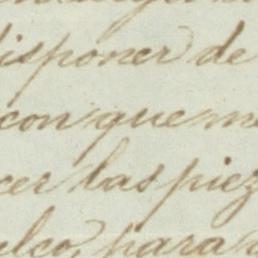 disponer de
con que me
cer las piez
alco, para